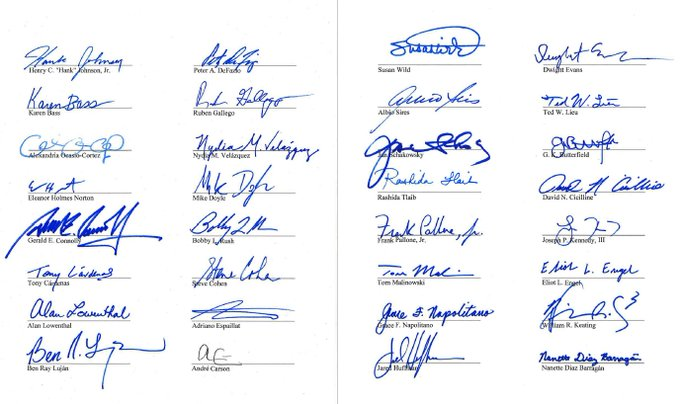 Hank Johnson
Henry C. "Hank" Johnson, Jr.
Peter A. DeFazio
Karen Bass
Karen Bass
Ruben Gallego
Ruben Gallego
Alexandria Ocasio-Cortez
Nydia M. Velázquez
Nydia M. Velázquez
Eleanor Holmes Norton
Mike Doyle
Mike Doyle
Gerald E. Connolly
Bobby L. Rush
Tony Cárdenas
Tony Cárdenas
Steve Cohen
Steve Cohen
Alan Lowenthal
Alan Lowenthal
Adriano Espaillat
Ben R. Luján
Ben Ray Luján
AC
André Carson
Susan Wild
Susan Wild
Dwight Evans
Albio Sires
Albio Sires
Ted W. Lieu
Ted W. Lieu
Jan Schakowsky
G. K. Butterfield
Rashida Tlaib
Rashida Tlaib
David N. Cicilline
David N. Cicilline
Frank Pallone, Jr.
Frank Pallone, Jr.
Joseph P. Kennedy, III
Tom Malinowski
Eliot L. Engel
Eliot L. Engel
Grace F. Napolitano
Grace F. Napolitano
William R. Keating
Jared Huffman
Nanette Diaz Barragán
Nanette Diaz Barragán